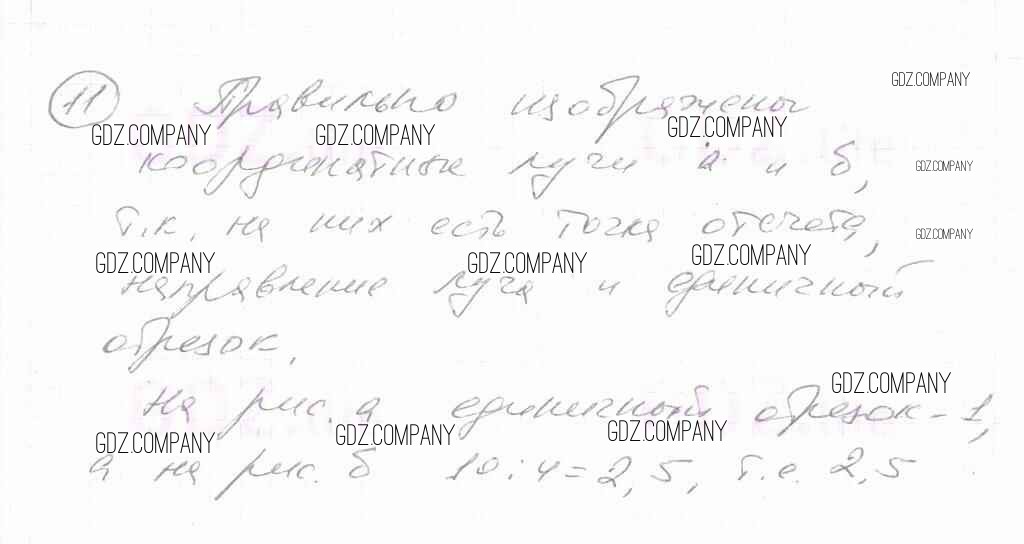 11 Правильно изображены
GDZ.COMPANY
GDZ.COMPANY GDZ.COMPANY GDZ.COMPANY
координатные лучи а и б,
GDZ.COMPANY
т.к. на них есть точка отсчета,
GDZ.COMPANY
GDZ.COMPANY GDZ.COMPANY GDZ.COMPANY
направление луча и единичный
отрезок.
GDZ.COMPANY
На рис. а единичный отрезок - 1,
GDZ.COMPANY GDZ.COMPANY GDZ.COMPANY
а на рис. б 10:4=2,5, т.е. 2,5